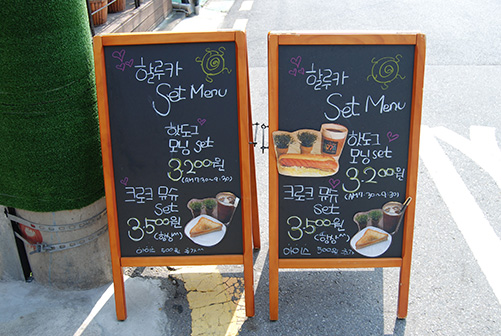 할루카
Set Menu
핫도그
모닝 set
3.200원
(AM 7:30~9:30)
크로크 뮤슈
Set
3500원
(항상^^)
아이스 500원 추가^^
할루카
Set Menu
핫도그
모닝 set
3.200원
(AM 7:30~9:30)
크로크 뮤슈
Set
3500원
(항상^^)
아이스 500원 추가^^